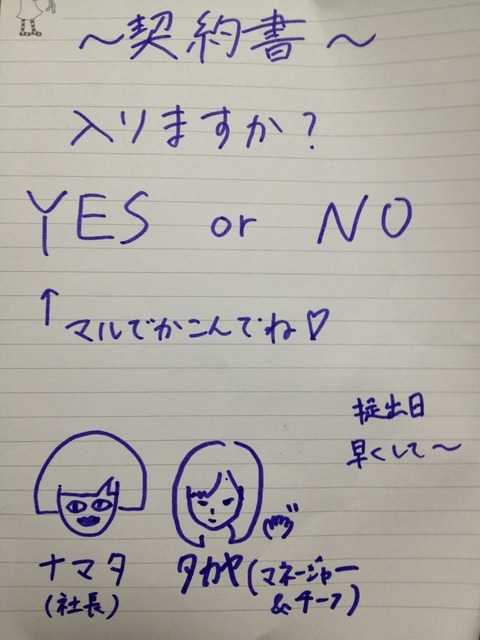 〜契約書〜
入りますか？
YES or NO
↑マルでかこんでね♡
提出日
早くして〜
ナマタ
(社長)
タカヤ(マネージャー
&チーフ)